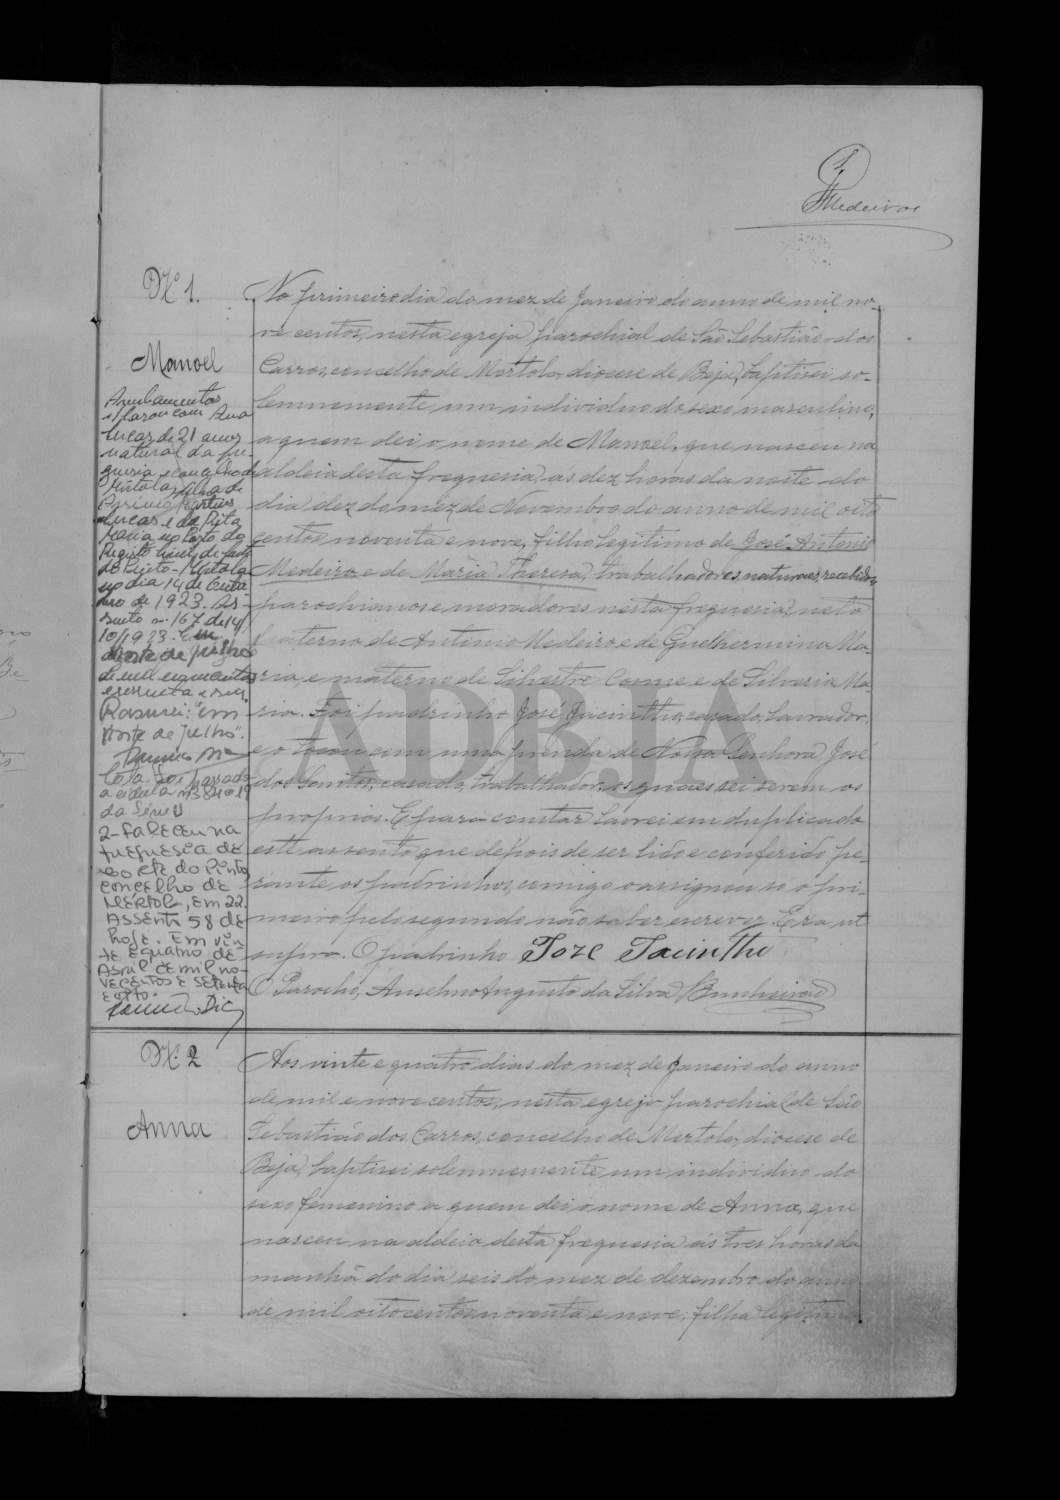 1
Medeiros
Nº 1.
Manoel
No primeiro dia do mez de Janeiro do anno de mil no-
ve centos, nesta egreja parochial de São Sebastião dos
Carros, concelho de Mertola, diocese de Beja, baptisei so-
lemnemente um individuo do sexo masculino,
a quem dei o nome de Manoel, que nasceu na
aldeia desta freguesia, ás dez horas da noite do
dia dez do mez de Novembro do anno de mil oito
centos noventa e nove, filho legitimo de José Antonio
Medeiro e de Maria Theresa, trabalhadores, naturaes, recebidos,
parochianos e moradores nesta freguesia, neto
paterno de Antonio Medeiro e de Guelhermina Ma-
ria, e materno de Silvestre Cosme e de Silveria Ma-
ria. Foi padrinho José Jacintho, casado, lavrador,
e o tocou com uma prenda de Nossa Senhora José
dos Santos, casado, trabalhador, os quaes sei serem os
proprios. E para constar lavrei em duplicado
este assento, que depois de ser lido e conferido pe-
rante os padrinhos, comigo o assignou só o pri-
meiro pelo segundo não saber escrever. Era ut
supra. O padrinho José Jacintho
O Parocho, Anselmo Augusto da Silva
com Ana
Lucas de 21 anos
natural da fre-
guesia e concelho de
Mértola, filha de
Martins
Lucas e de Rita
Maria no Posto do
Registo Civil de
no dia 14 de Outu
bro de 1923. As-
sento n. 167 de 14/
10/1923. Em
de julho
de mil novecentos
e sessenta e seis
Rasurei: "em
vinte de julho".
2-Faleceu na
freguesia de
do Pinto
concelho de
Mértola, em 22.
Assento 58 de
hoje. Em vin-
te e quatro de
Abril de mil no-
vecentos e setenta
e oito.
Nº 2
Anna
Aos vinte e quatro dias do mez de Janeiro do anno
de mil e nove centos, nesta egreja parochial de São
Sebastião dos Carros, concelho de Mertola, diocese de
Beja, baptisei solemnemente um individuo do
sexo femenino a quem dei o nome de Anna, que
nasceu na aldeia desta freguesia ás tres horas da
manhã do dia seis do mez de dezembro do anno
de mil oitocentos noventa e nove, filha legitima
ADBJA